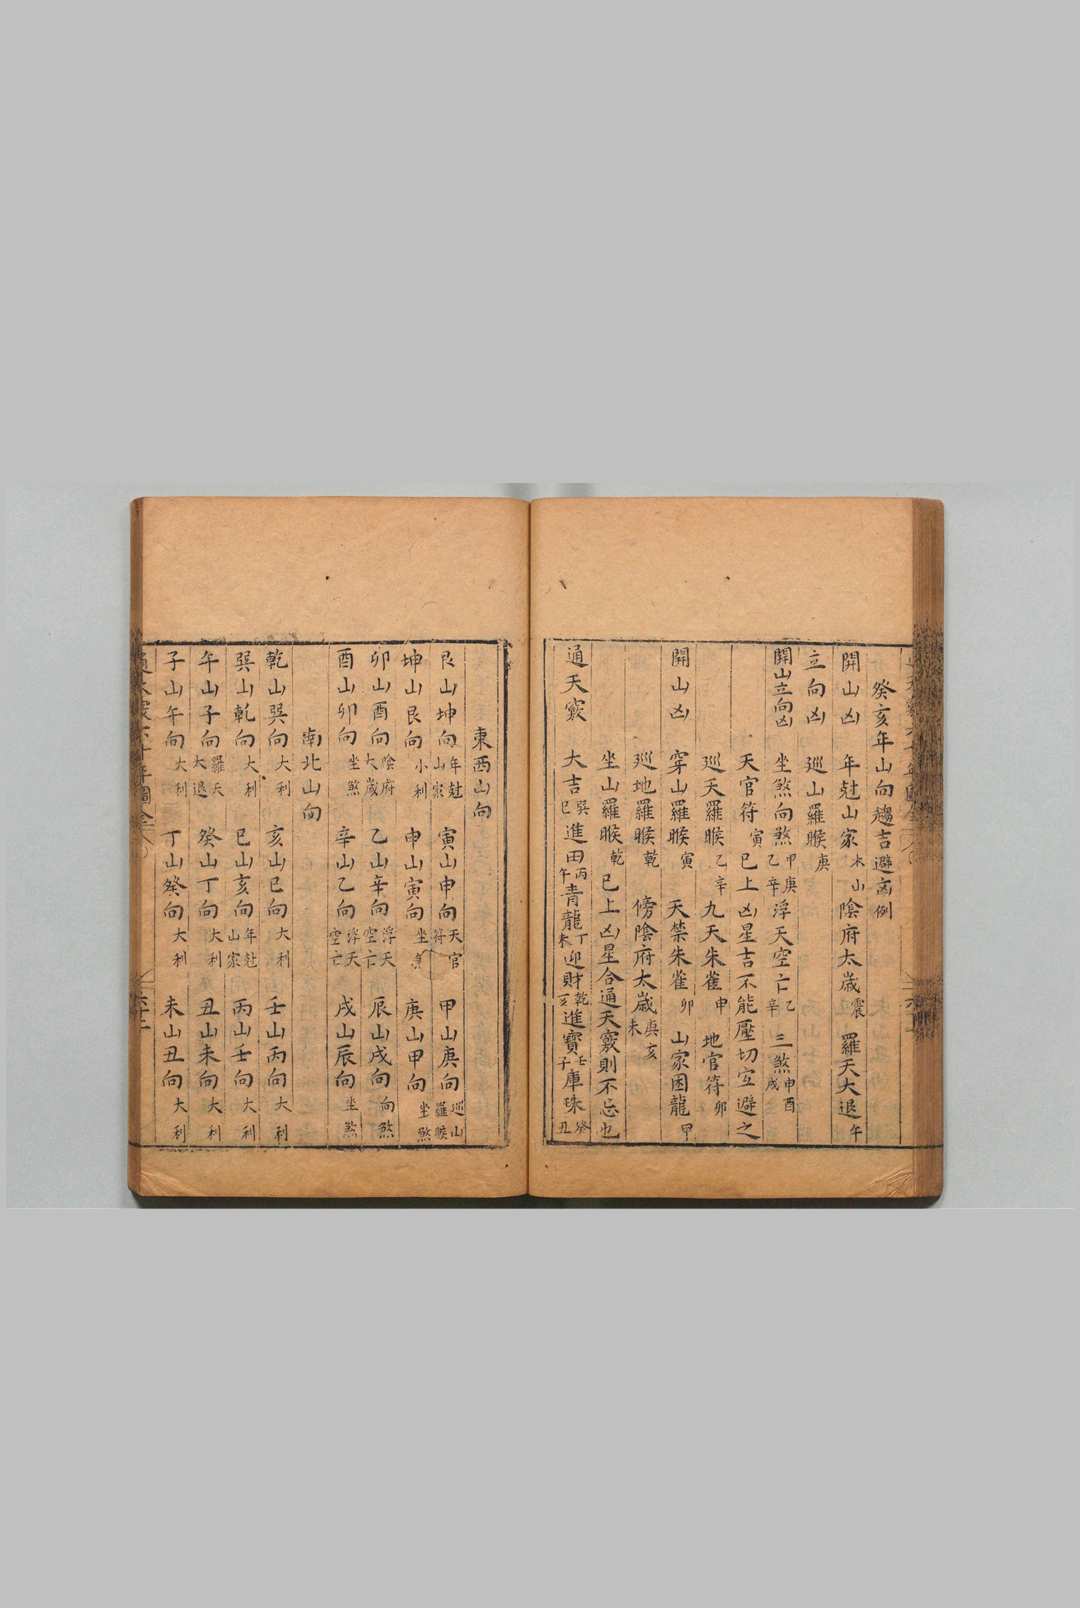 癸亥年山向趨吉避凶例
開山凶 年尅山家 未山 陰府太歲 震 羅天大退 午
立向凶 巡山羅睺 庚
開山立向凶 坐煞向煞 甲庚乙辛 浮天空亡 乙辛 三煞 申酉戌
天官符 寅 已上凶星吉不能壓切宜避之
巡天羅睺 乙辛 九天朱雀 申 地官符 卯
穿山羅睺 寅 天禁朱雀 卯 山家困龍 甲
巡地羅睺 乾 傍陰府太歲 庚亥未
坐山羅睺 乾 已上凶星合通天竅則不忌也
通天竅 大吉 巽巳 進田 丙午 青龍 丁未 迎財 乾亥 進寶 壬子 庫珠 癸丑
東西山向
艮山坤向 年尅山家 寅山申向 天官符 甲山庚向 巡山羅睺
坤山艮向 小利 申山寅向 坐煞 庚山甲向 坐煞
卯山酉向 陰府大歲 乙山辛向 浮天空亡 辰山戌向 向煞
酉山卯向 坐煞 辛山乙向 浮天空亡 戌山辰向 坐煞
南北山向
乾山巽向 大利 亥山巳向 大利 壬山丙向 大利
巽山乾向 大利 巳山亥向 年尅山家 丙山壬向 大利
午山子向 羅天大退 癸山丁向 大利 丑山未向 大利
子山午向 大利 丁山癸向 大利 未山丑向 大利